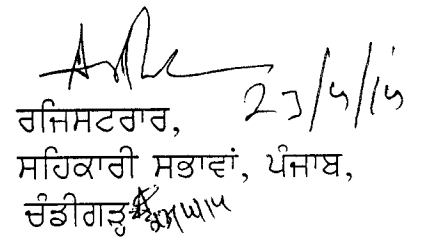 23/4/15
ਰਜਿਸਟਰਾਰ,
ਸਹਿਕਾਰੀ ਸਭਾਵਾਂ, ਪੰਜਾਬ,
ਚੰਡੀਗੜ੍ਹ